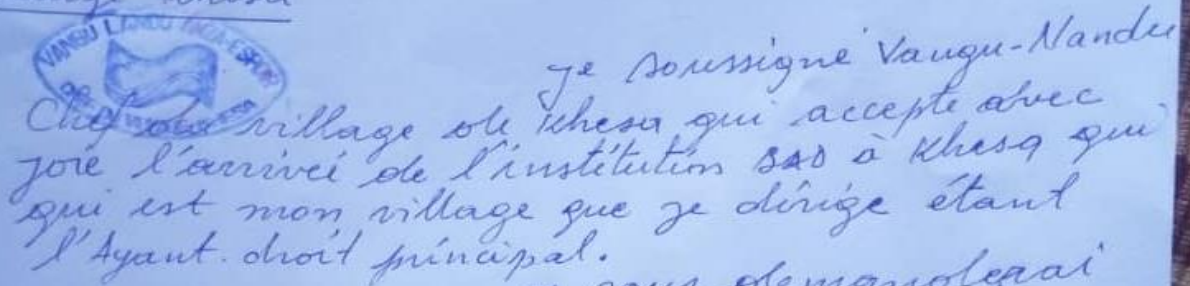 VANGU LANDU
Je soussigné Vangu-Nandu
Chef du village de Khesa qui accepte avec
joie l'arrivéi de l'institution SAD à Khesa qui
qui est mon village que je dirige étant
l'Ayant-droit principal.
demanderai